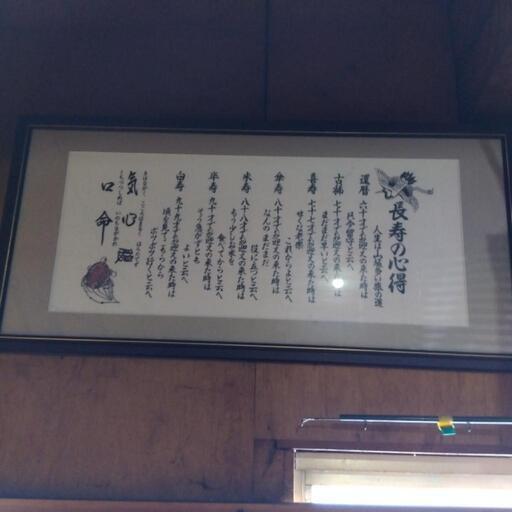 長寿の心得
人生は山坂多い旅の道
還暦 六十才でお迎えの来た時は
只今留守と云へ
古稀 七十才でお迎えの来た時は
まだまだ早いと云へ
喜寿 七十七才でお迎えの来た時は
せくな老楽
これからよと云へ
傘寿 八十才でお迎えの来た時は
なんのまだまだ
役に立つと云へ
米寿 八十八才でお迎えの来た時は
もう少しお米を
食べてからと云へ
卒寿 九十才でお迎えの来た時は
そう急がずとも
よいと云へ
白寿 九十九才でお迎えの来た時は
頃を見てこちらから
ボツボツ行くと云へ
気 心
口 命